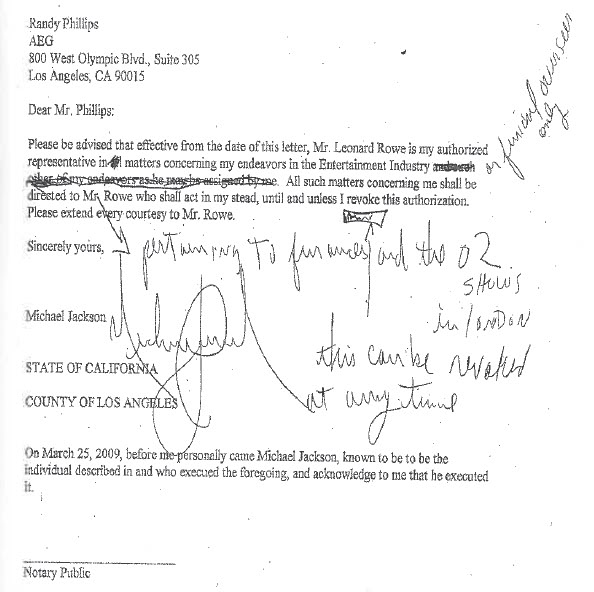 Randy Phillips
AEG
800 West Olympic Blvd., Suite 305
Los Angeles, CA 90015
or finicial overseer
only
Dear Mr. Phillips:
Please be advised that effective from the date of this letter, Mr. Leonard Rowe is my authorized
representative in matters concerning my endeavors in the Entertainment Industry and such
other of my endeavors as he may be assigned by me. All such matters concerning me shall be
directed to Mr. Rowe who shall act in my stead, until and unless I revoke this authorization.
Please extend every courtesy to Mr. Rowe.
Sincerely yours,
pertaining to finances and the 02
SHOWS
in LONDON
this can be revoked
at any time
Michael Jackson
STATE OF CALIFORNIA
COUNTY OF LOS ANGELES
On March 25, 2009, before me personally came Michael Jackson, known to be to be the
individual described in and who execued the foregoing, and acknowledge to me that he executed
it.
Notary Public